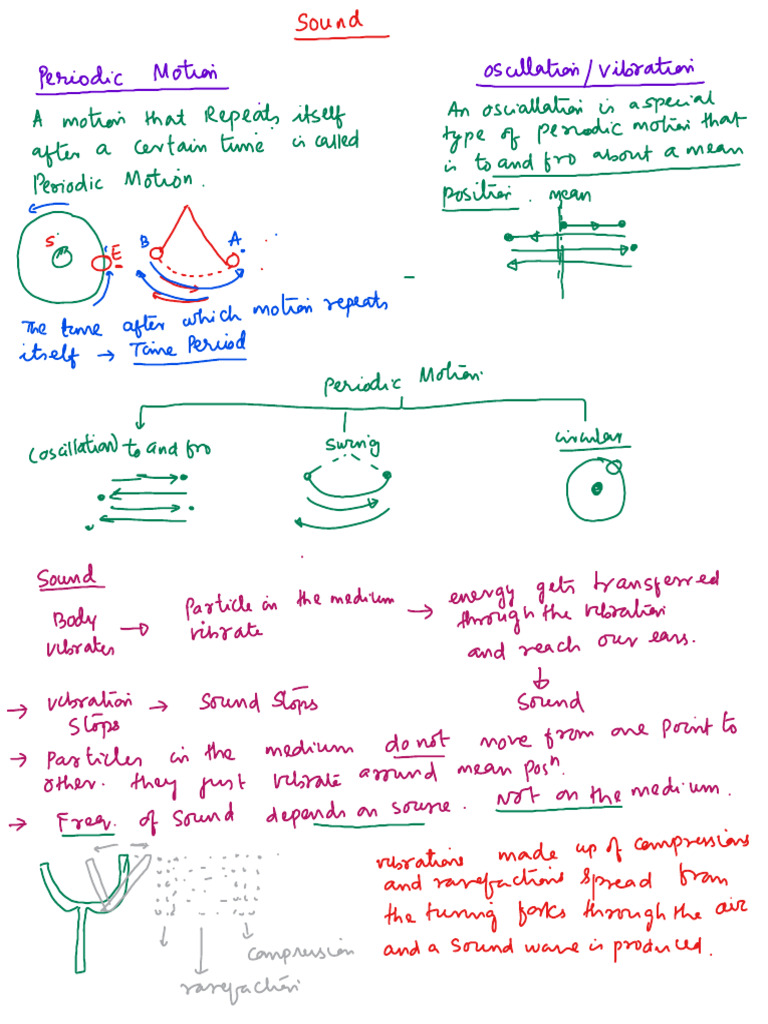 Sound
Periodic Motion
A motion that Repeats itself
after a certain time is called
Periodic Motion.
S
E
B
A
The time after which motion repeats
itself → Time Period
Oscillation/Vibration
An osciallation is a special
type of periodic motion that
is to and fro about a mean
position.
mean
Periodic Motion.
(oscillation) to and fro
Swing
circular
Sound
Body
vibrates
→ Particle in the medium
vibrate
→ energy gets transferred
through the vibration
and reach our ears.
Sound
→ vibration
stops
→ Sound Stops
→ Particles in the medium do not move from one point to
other. they just vibrate around mean posⁿ.
→ Freq. of sound depends on source. Not on the medium.
compression
rarefaction
vibrations made up of compressions
and rarefactions spread from
the tuning forks through the air
and a sound wave is produced.